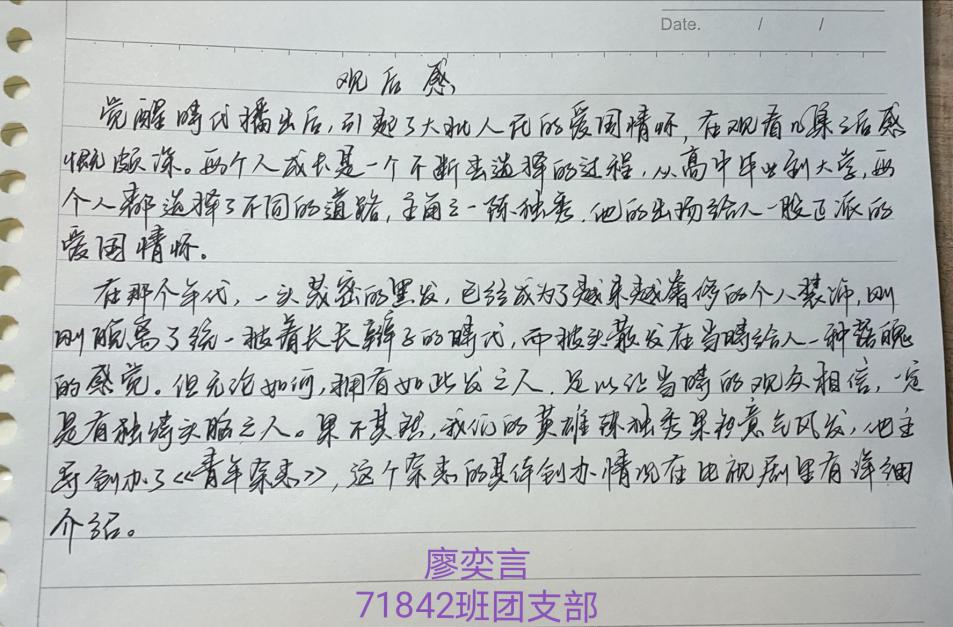 Date. / /
观后感
觉醒时代播出后,引起了大批人民的爱国情怀,在观看几集之后感
慨颇深。每个人成长是一个不断去选择的过程,从高中毕业到大学,每
个人都选择了不同的道路,主角之一陈独秀,他的出场给人一股正派的
爱国情怀。
在那个年代,一头茂密的黑发,已经成为了越来越奢侈的个人装饰,刚
刚脱离了统一披着长长辫子的时代,而披头散发在当时给人一种落魄
的感觉。但无论如何,拥有如此发之人,足以让当时的观众相信,一定
是有独特头脑之人。果不其然,我们的英雄陈独秀果务意气风发,他主
导创办了《青年杂志》,这个杂志的具体创办情况在电视剧里有详细
介绍。
廖奕言
71842班团支部